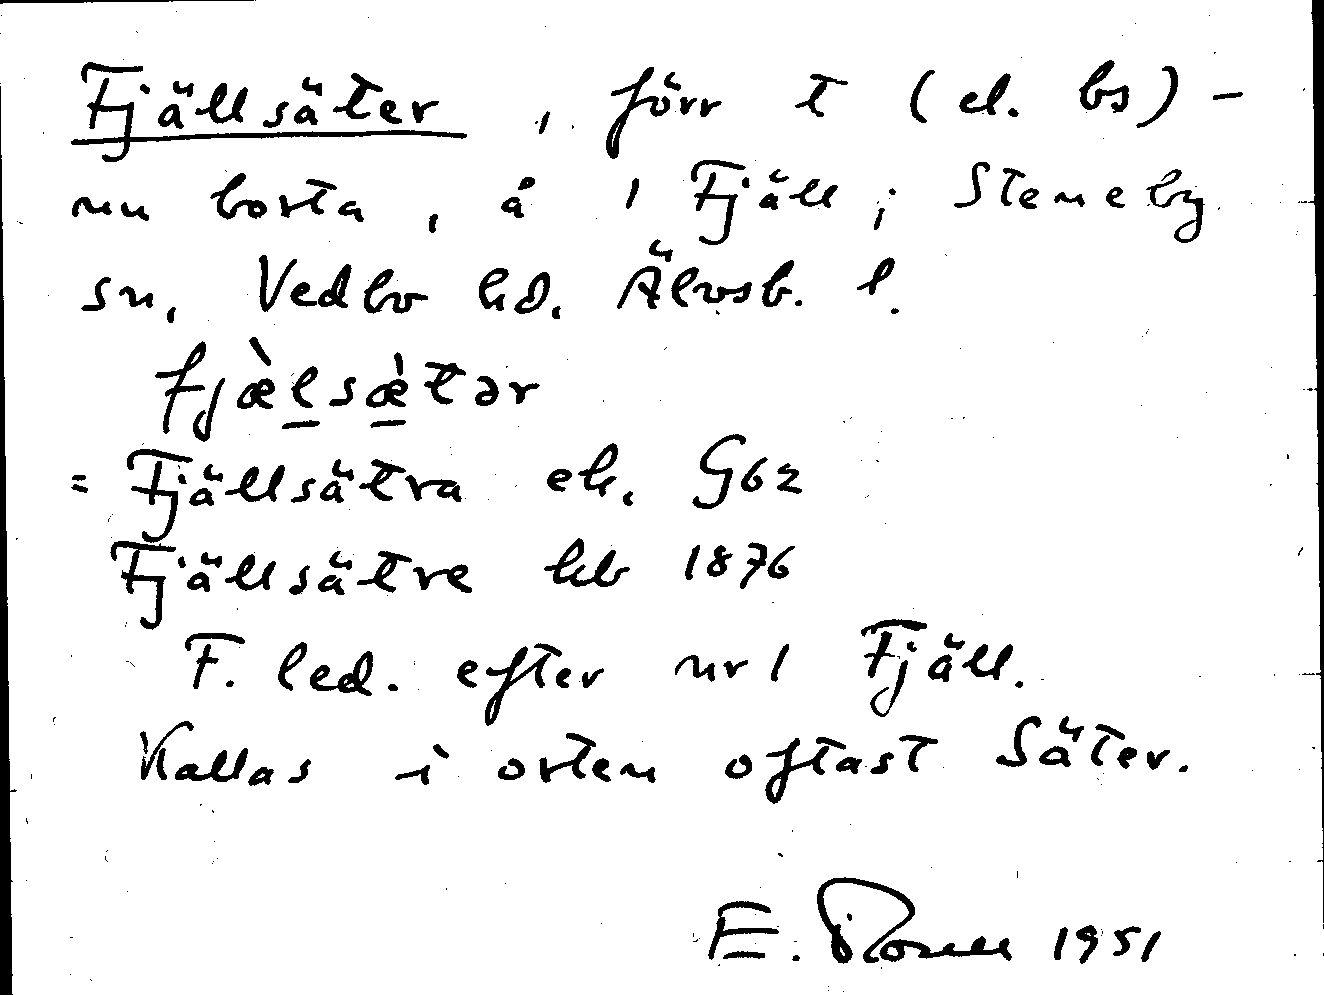 Fjällsäter, förr t (el. bs) -
nu borta, å 1 Fjäll; Steneby
sn, Vedbo hd. Älvsb. l.
fjæ̀lsæ̀tər
= Fjällsätra ek. G62
Fjällsätre hb 1876
F. led. efter nr 1 Fjäll.
Kallas i orten oftast Säter.
E. 1951